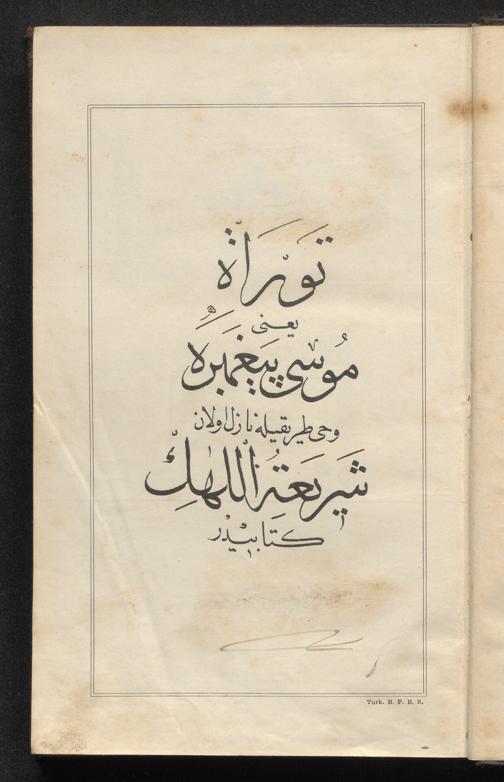 تَوْرَاةْ
يعنى
مُوسٰى پَيغَمْبَرَهْ
وحى طريقيله نازل اولان
شَرِيعَةُ اللّٰهِڭ
كتابيدر
Turk. B. F. B. S.